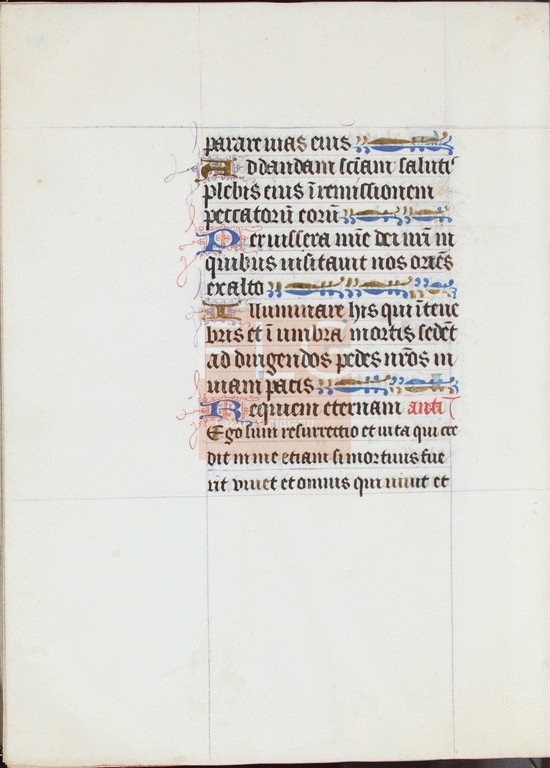 parare uias eius
Ad dandam sciam saluti
plebis eius i remissionem
peccatorū eorū
Per uissera mie dei nri in
quibus uisitauit nos oriēs
exalto
Illuminare his qui i tene
bris et i umbra mortis sedēt
ad dirigendos pedes nros in
uiam pacis
Requiem eternam anti
Ego sum resurrectio et uita qui cre
dit in me etiam si mortuus fue
rit viuet et omnis qui uiuit et